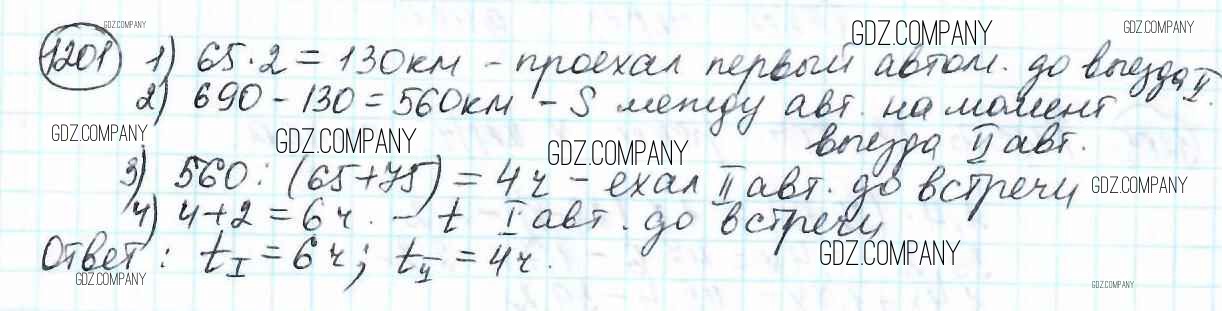 GDZ.COMPANY
GDZ.COMPANY GDZ.COMPANY
1201 1) 65·2=130км - проехал первый автом. до выезда II.
2) 690-130=560км - S между авт. на момент
GDZ.COMPANY GDZ.COMPANY GDZ.COMPANY выезда II авт.
3) 560:(65+75)=4ч - ехал II авт. до встречи GDZ.COMPANY
4) 4+2=6ч. - t I авт. до встречи
Ответ: tI=6ч; tII=4ч. GDZ.COMPANY
GDZ.COMPANY GDZ.COMPANY